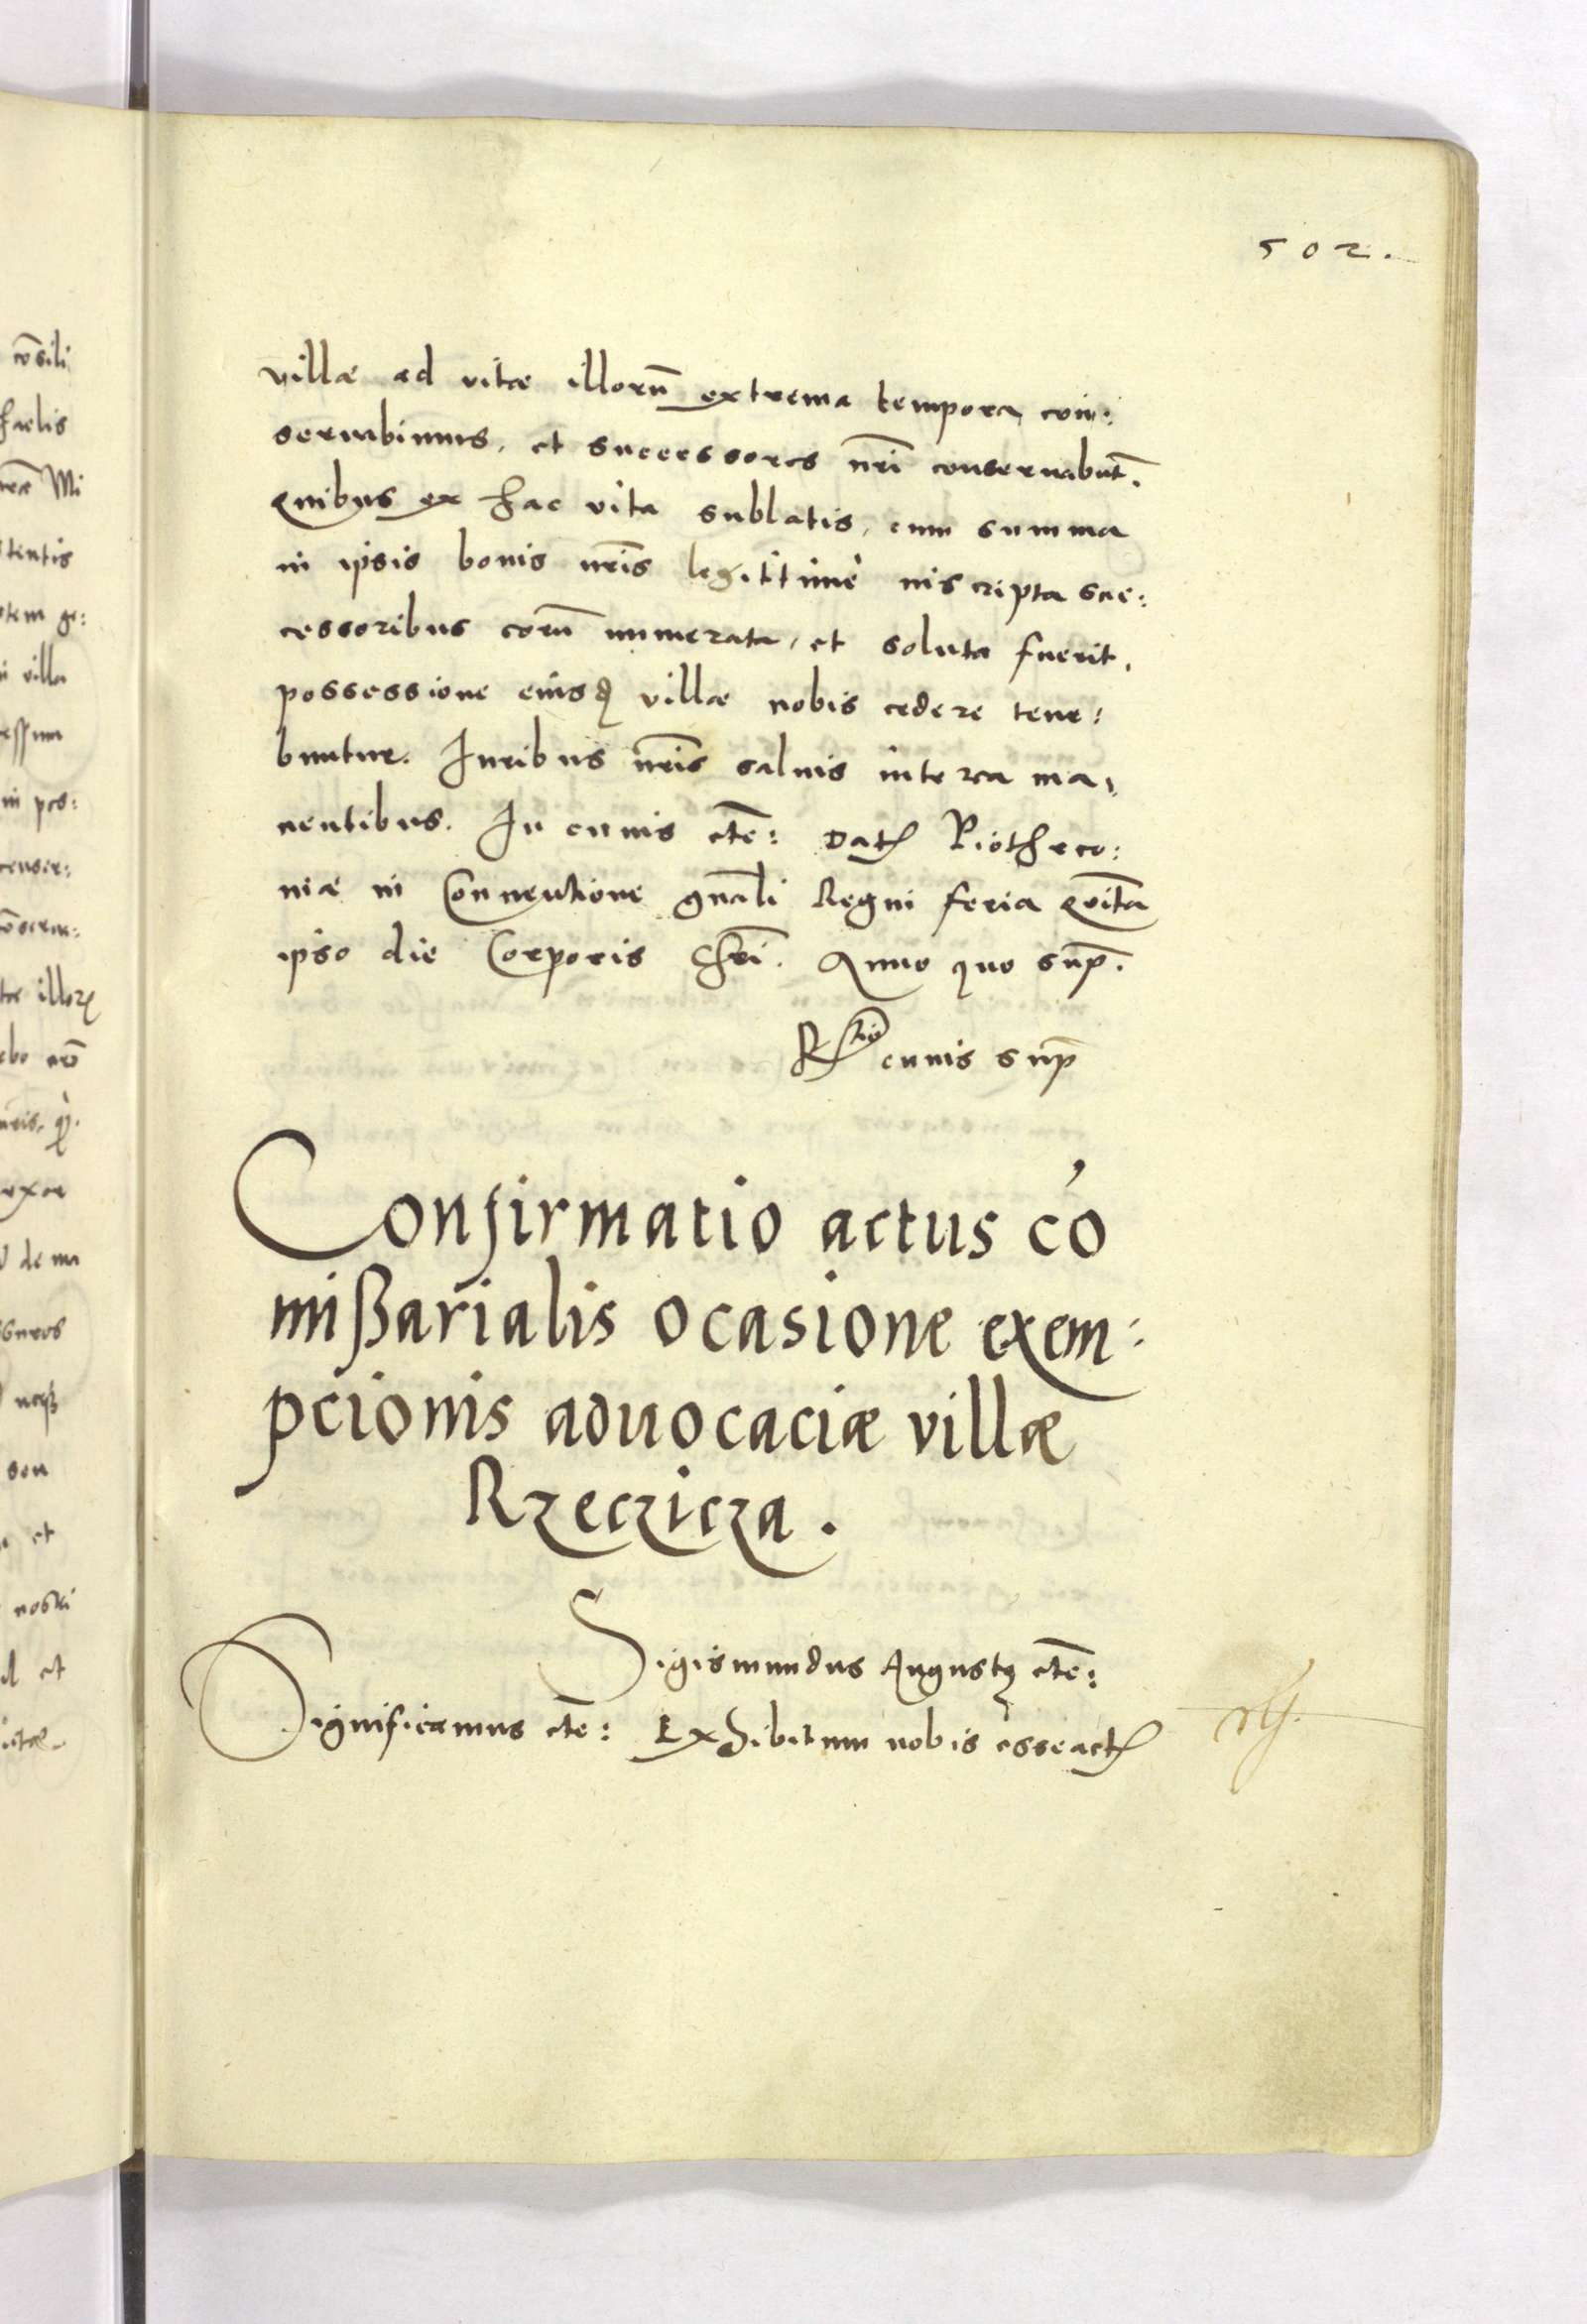 502.
villæ ad vitæ illorũ extrema tempora con:
seruabimus, et successores nr̃i conseruabũt.
Quibus ex hac vita sublatis, cum summa
in ipsis bonis nr̃is legittimè inscripta suc:
cessoribus eorũ numerata, et soluta fuerit,
possessione eiusd villæ nobis cedere tene:
buntur. Iuribus nr̃is saluis interea ma,
nentibus. In cuius etc̃: Dat Piotrkco:
niæ in Conuentione gñali Regni feria Quĩta
ipso die Corporis Chr̃i. Anno quo sup̃.
Rtio cuius sup̃
Confirmatio actus cõ
mißarialis ocasione exem:
pcionis aduocaciæ villæ
Rzeczicza.
Sigismundus Augustꝫ etc̃:
Significamus etc̃: Exhibitum nobis esse act